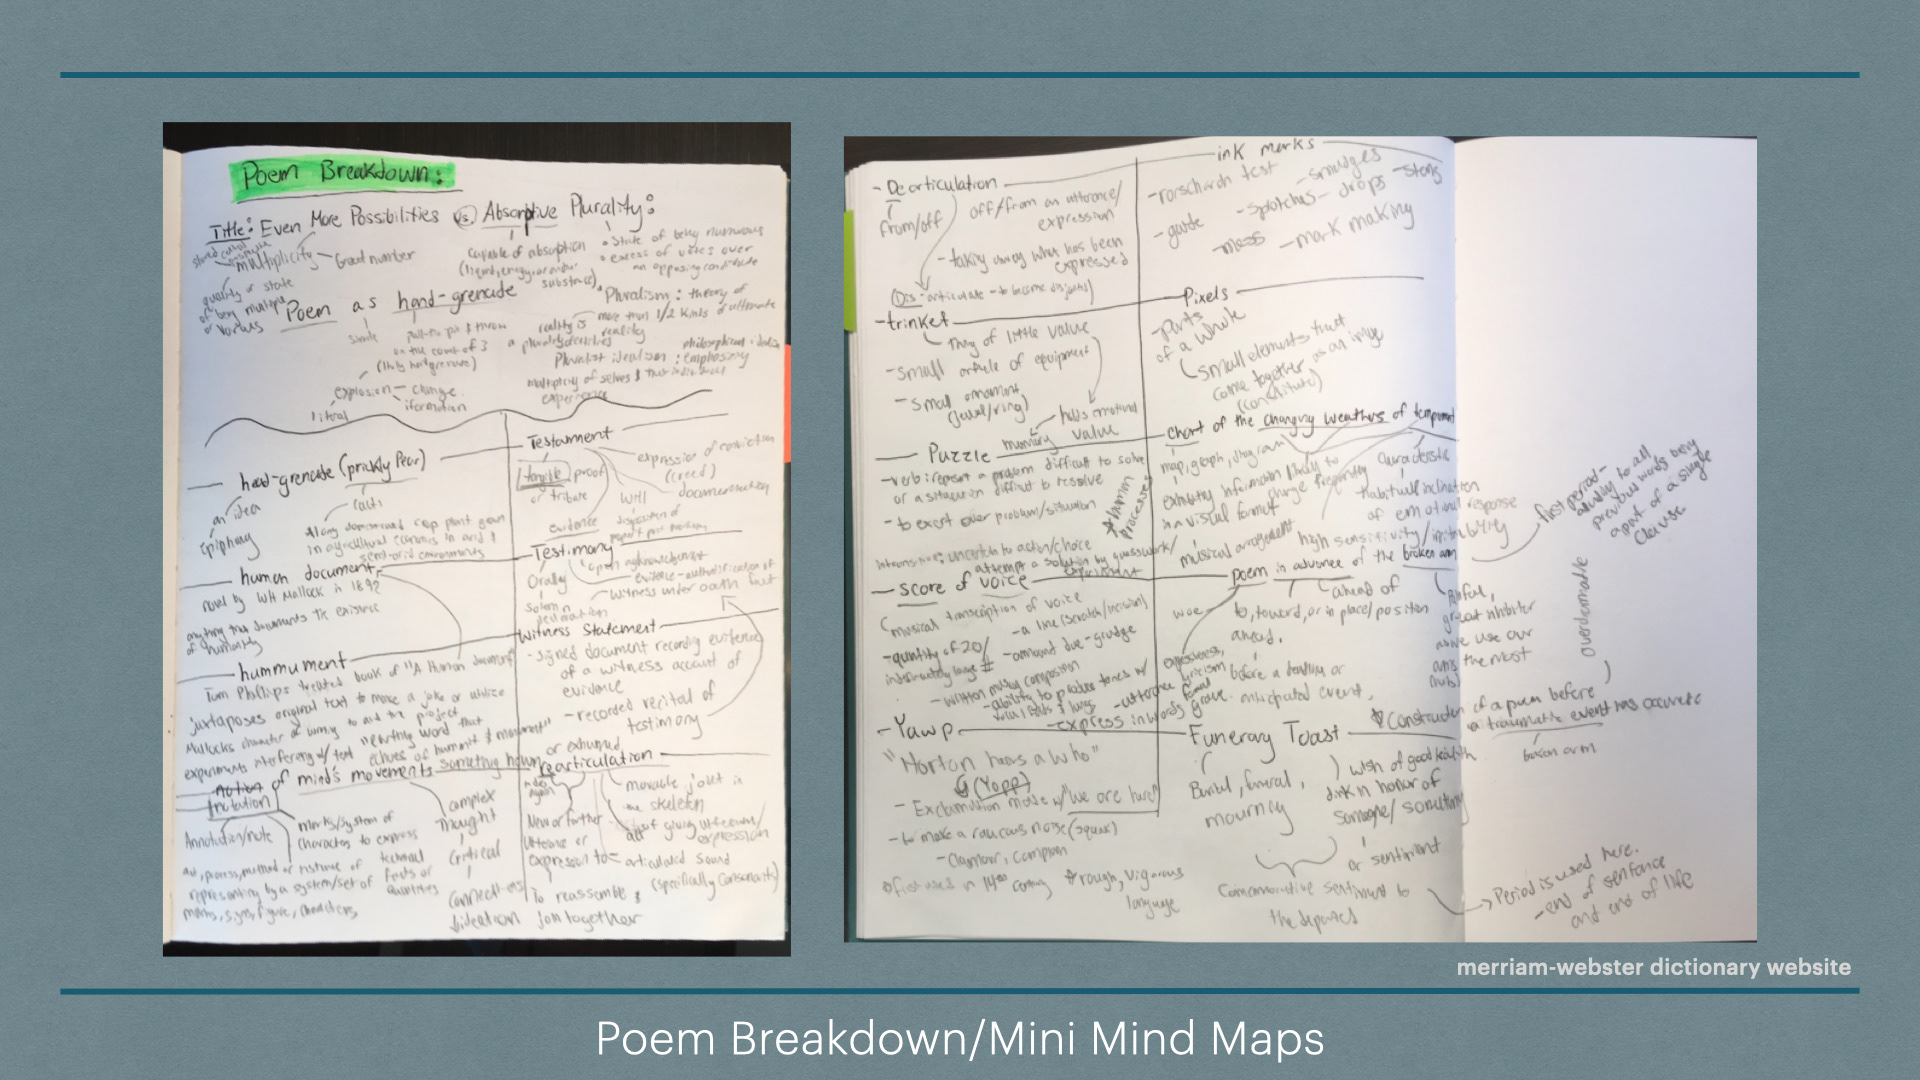 Poem Breakdown:
Title: Even More Possibilities vs. Absorptive Plurality:
multiplicity - Great number
quality or state
of being multiple
or various
capable of absorption
(liquid, energy, or other
substance)
State of being numerous
excess of votes over
an opposing candidate
Pluralism: theory of
more than 1/2 kinds of ultimate
reality
Poem as hand-grenade
simile
pull the pin & throw
on the count of 3
explosion - change
literal
Pluralist idealism: emphasizing
multiplicity of selves & their individual
experience
hand-grenade (prickly Pear)
an idea
Epiphany
cacti
Along domesticated crop plant grown
in agricultural economies in arid &
semi-arid environments
human document,
novel by WH Mallock in 1892
anything that documents the existence
of humanity
hummument
Tom Phillips treated book of "A Human Document"
juxtaposes original text to make a joke or utilize
Mallocks character or to aid the project
experiments interfering w/ text
echoes of humanity & monument"
notion of mind's movements something human
(notation)
Annotation/note
marks/system of
characters to express
technical
facts or
quantities
act, process, method or instance of
representing by a system/set of
marks, signs, figures, characters
complex
Thought
Critical
Connections
Ideation
Testament
tangible proof
or tribute
evidence
will
expression of conviction
(creed)
documentation
Testimony
Orally
solemn
declaration
open acknowledgment
evidence - authentification of
witness under oath
Witness Statement
- signed document recording evidence
of a witness account of
evidence
- recorded recital of
testimony
or exhumed
rearticulation
New or further
utterance or
expression to
movable joint in
the skeleton
act of giving utterance/
expression
articulated sound
(specifically Consonants)
To reassemble &
join together
- Dearticulation
from/off
off/from an utterance/
expression
- taking away what has been
expressed
Dis-articulate - to become disjointed
- trinket
Thing of little value
- small article of equipment
- small ornament
(jewel/ring)
holds emotional
value
memory
Puzzle
- verb: represent a problem difficult to solve
or a situation difficult to resolve
- to exert over problem/situation
intransitive: uncertain to action/choice
attempt a solution by guesswork/
experiment
score of voice
musical transcription of voice
- quantity of 20/
- a line (scratch/incision)
- amount due - grudge
- written music composition
- ability to produce tones w/
- utterance
- express in words
- Yawp
"Horton hears a Who"
(Yopp)
- Exclamation made w/ "we are here"
- to make a raucous noise (squawk)
- Clamour, complain
first used in 14th century
rough, vigorous
language
ink marks
- rorschach test
- smudges
- splotches - drops
- guide
mess - mark making
Pixels
Parts
of a whole
small elements that
come together as an image
(constitute)
chart of the changing weathers of temperament
map, graph, diagram
exhibiting information
in a visual format
likely to
change frequently
characteristic
habitual inclination
of emotional response
musical arrangement
high sensitivity/irritability
poem in advance of the broken arm
woe
to, toward, or in place/position
ahead.
ahead of
before a deadline or
anticipated event.
Painful,
great inhibitor
as we use our
arms the most
expressiveness,
lyricism
formal
grave
Construction of a poem before
a traumatic event has occurred
broken arm
first period -
actually to all
previous words being
apart of a single
clause
overdetermable
Funerary Toast
Burial, funeral,
mourning
wish of good health
drink in honor of
someone/something
or sentiment
Commemorative sentiment to
the departed
Period is used here.
- end of sentence
and end of life
merriam-webster dictionary website
Poem Breakdown/Mini Mind Maps